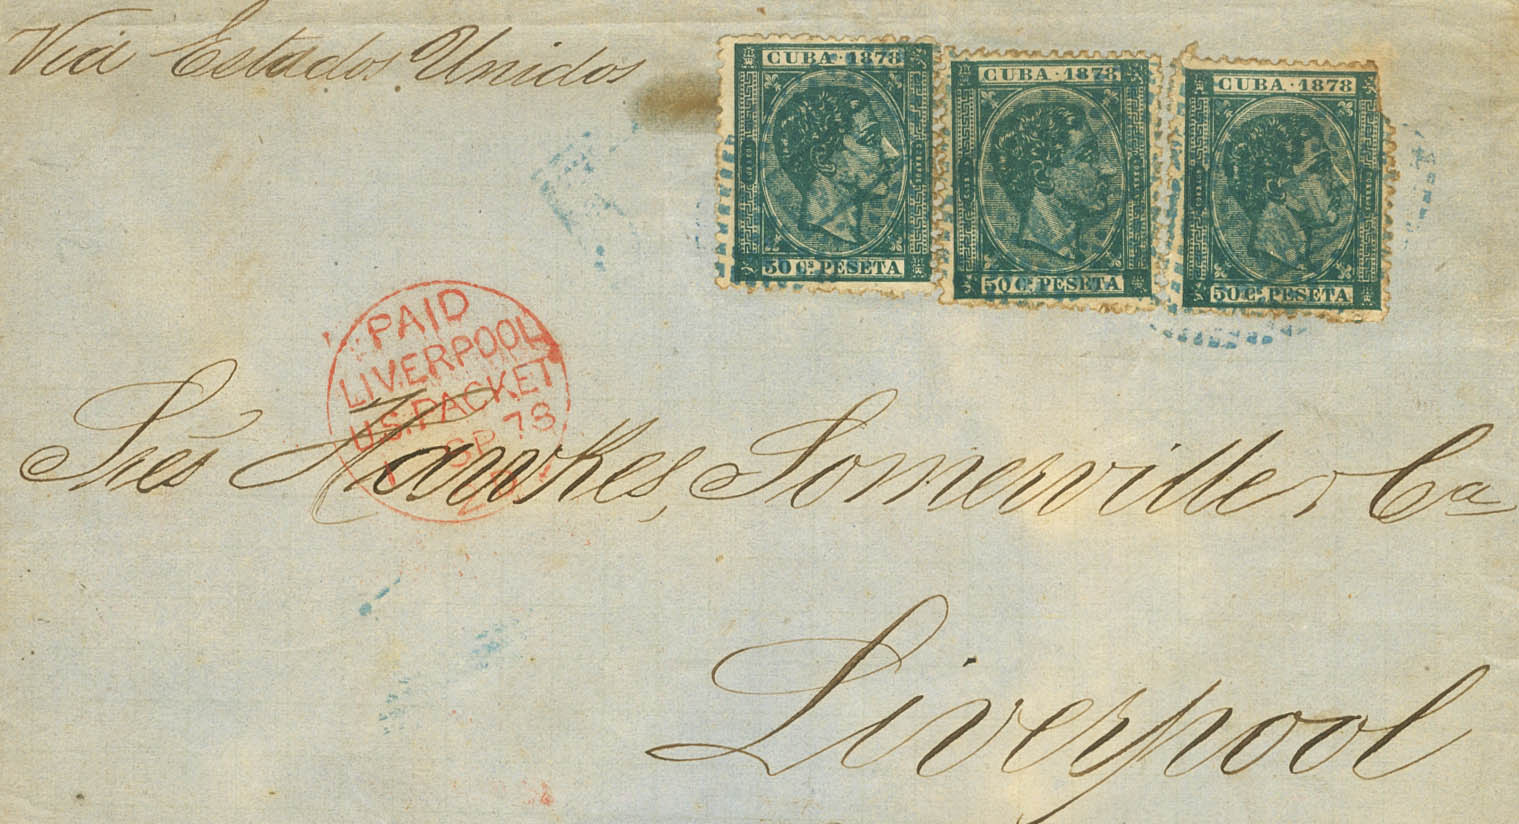 Via Estados Unidos
CUBA · 1878
50 Cs. PESETA
CUBA · 1878
50 Cs. PESETA
CUBA · 1878
50 Cs. PESETA
PAID
LIVERPOOL
U.S. PACKET
SP 78
Sres Hawkes, Somerville & Ca
Liverpool